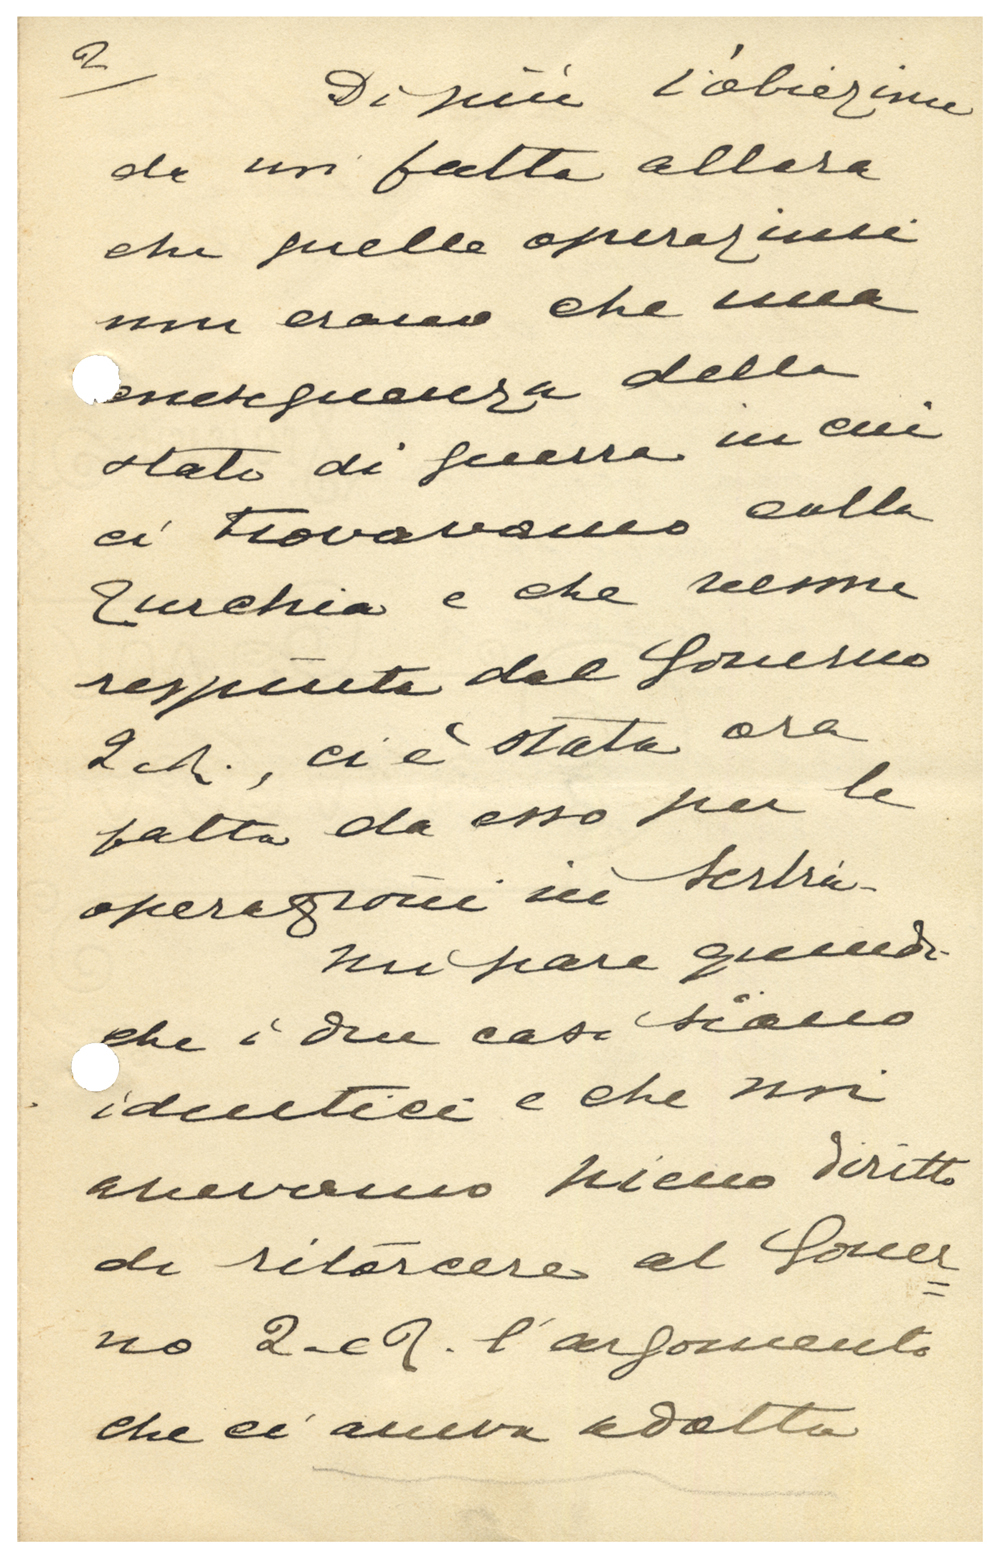 2
Di più l'obiezione
da noi fatta allora
che quelle operazioni
non erano che una
conseguenza dello
stato di guerra in cui
ci trovavamo colla
Turchia e che venne
respinta dal Governo
I. e R., ci è stata ora
fatta da esso per le
operazioni in Serbia.
Mi pare quindi
che i due casi siano
identici e che noi
avevamo pieno diritto
di ritorcere al Gover=
no I. e R. l'argomento
che ci aveva adotto